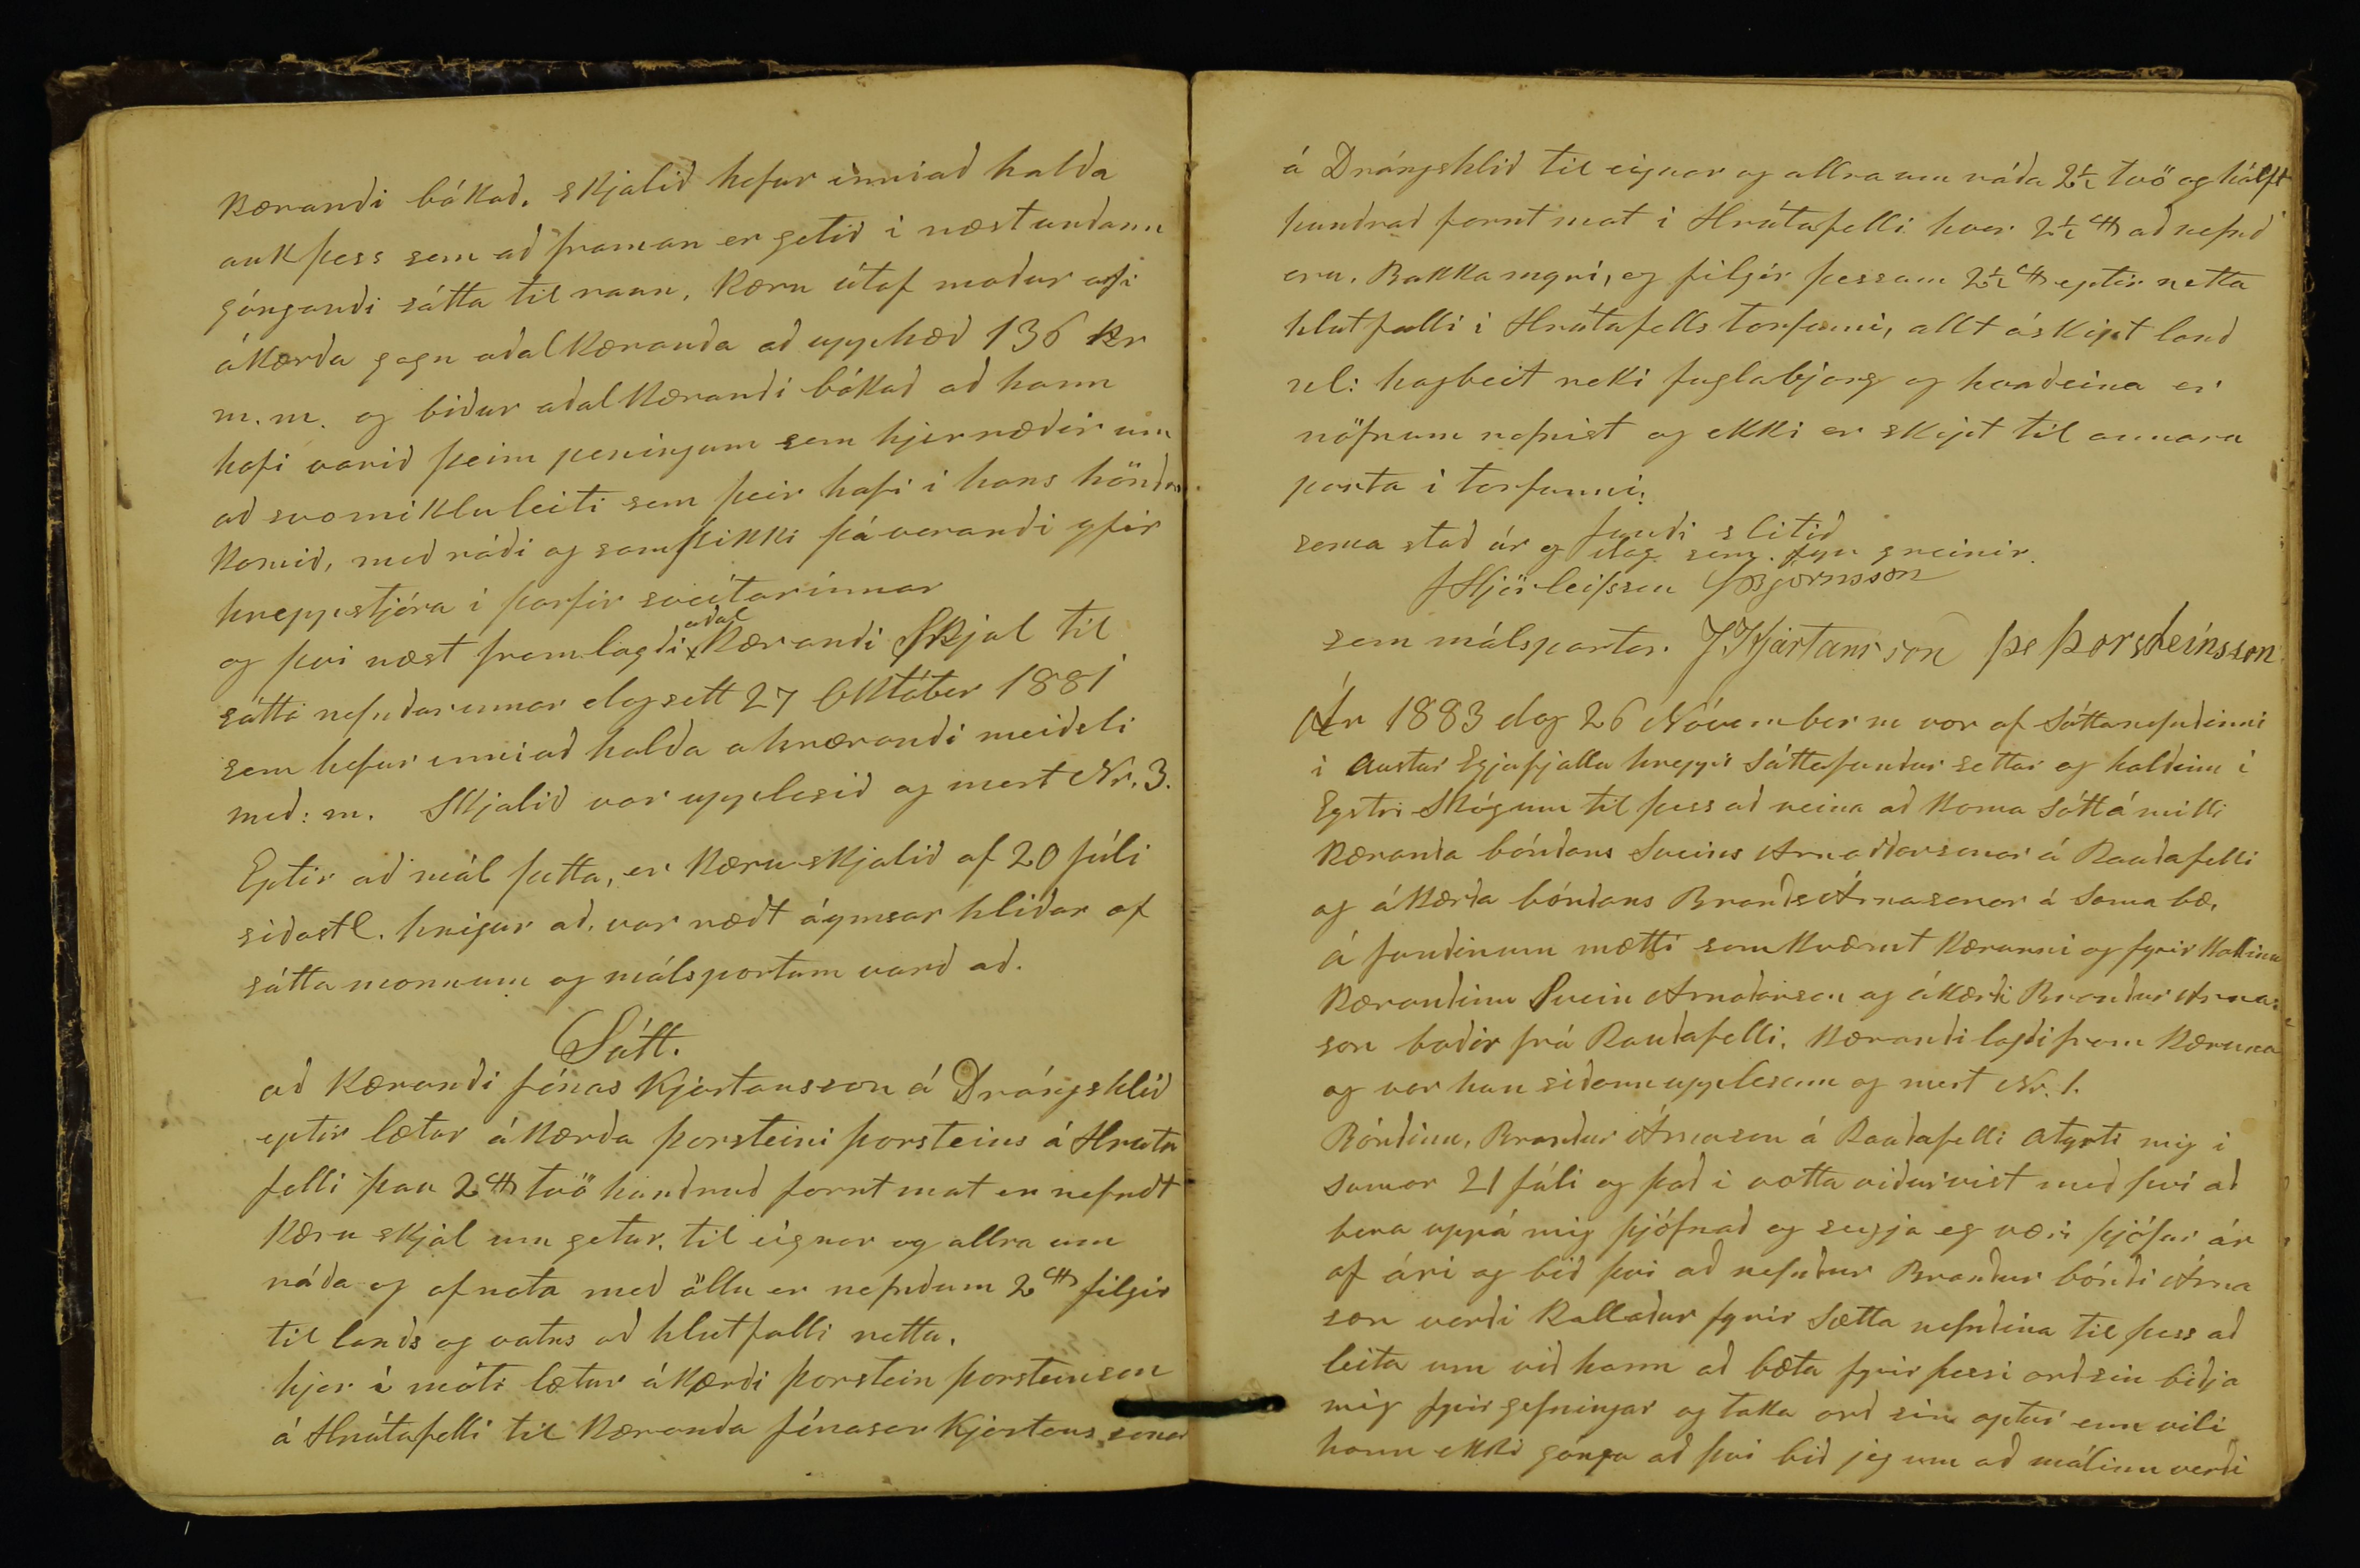 kærandi bókad. skjalid hefur inniad halda
auk þess sem ad framan er getid i næst undann
gángandi sátta til raun, kæru útaf modur arfi
ákærda gagn adalkæranda ad upphæd 136 kr
m.m. og bidur adalkærandi bókad ad hann
hafi varid þeim peningum sem hjer rædir um
ad svo miklu leiti sem þeir hafi i hans höndur
komid, med rádi og samþikki þáverandi yfir
hreppstjóra i þarfir sveitarinnar
og þvi næst framlagdi adal kærandi Skjal til
sátta nefndarinnar dagsett 27 Október 1881
sem hefur inniad halda ahrærandi meidsli
med: m. Skjalid var upplesid og mert Nr. 3.
Eptir ad mál þetta, er kæruskjalid af 20 júli
sidastl. hnigur ad, var rædt áymsar hlidar af
sátta monnum og málspörtum vard ad.
Sátt.
ad kærandi Jónas Kjartansson á Drángshlíd
eptir lætur ákærda þorsteini þorsteins á Hruta
felli þau 2 tvö hundrud fornt mat er nefndt
kæru skjal um getur, til eignar og allra um
ráda og afnota med öllu er nefndum 2 filgir
til lands og vatns ad hlutfalli rettu.
hjer í móti lætur ákærdi þorstein þorsteinson
á Hrútafelli til kæranda Jónasar Kjartans,sonar
á Drángshlid til eignar og allra um ráda 2½ tvö og hálft
hundrad fornt mat i Hrútafelli hver 2½ ad nefnd
eru, Bakkamyri, og filgir þessum 2½ eptir retta
hlutfalli i Hrútafells torfunni, allt óskipt land
nl: hagbeit reki fuglabjarg og hvadeina er
nöfnum nefnist og ekki er skipt til annara
parta i torfunni.
fundi slitid
sama stad ár og dag sem fyr greinir.
JHjörleifsson Björnsson
sem málspartar. JKjartansson þe þorsteinsson
Ár 1883 dag 26 Nóvember m var af Sáttanefndinni
i Austur Eyjafjalla hreppi Sáttafundur settur og haldinn í
Eystri Skógum til þess ad reina ad koma Sátt á milli
kæranda bóndans Sveins Arnoddarsonar á Raudafelli
og ákærda bóndans Brands Árnasonar á Sama bæ.
á fundinum mætti samkvæmt kærunni og fyrir kallinu
kærandinn Svein Arnodarson og ákærdi Brandur Arna-
son badir frá Raudafelli. kærandi lagdi fram kæruna
og var hun sidann upplesinn og mert Nr. 1.
Bóndinn, Brandur Árnason á Raudafelli atyrti mig i
sumar 21 júli og þad i votta vidurvist med því ad
bera uppá mig þjófnad og segja eg væri þjófur ár
af ári og bid þvi ad nefndur Brandur bóndi Árna
son verdi kalladur fyrir Sætta nefndina til þess ad
leita um vid hann ad bæta fyrir þessi ord sin bidja
mig fyrirgefningar og taka ord sin aptur enn vili
hann ekki gánga ad þvi bid jeg um ad málinu verdi